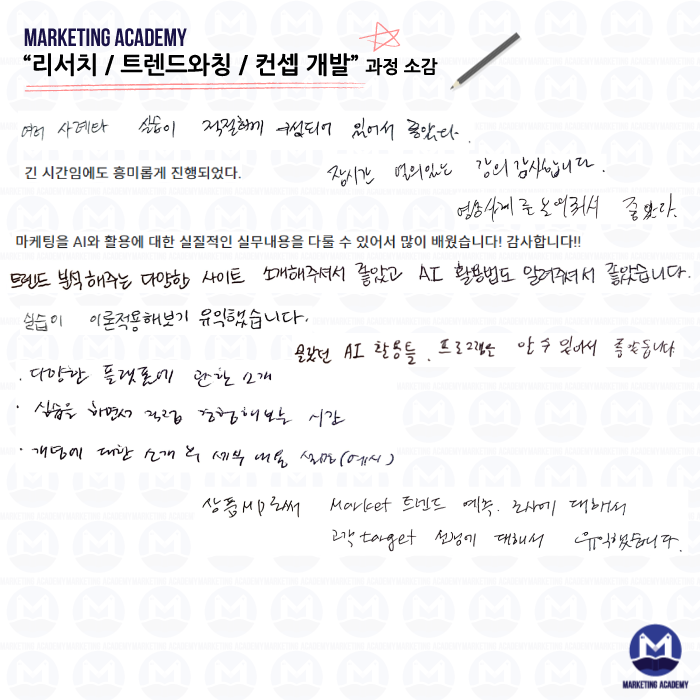 MARKETING ACADEMY
“리서치 / 트렌드와칭 / 컨셉 개발” 과정 소감
여러 사례와 실습이 적절하게 구성되어 있어서 좋았다.
긴 시간임에도 흥미롭게 진행되었다.
장시간 열의있는 강의 감사합니다.
좋았다.
마케팅을 AI와 활용에 대한 실질적인 실무내용을 다룰 수 있어서 많이 배웠습니다! 감사합니다!!
트렌드 분석해주는 다양한 사이트 소개해주셔서 좋았고 AI 활용법도 알려주셔서 좋았습니다.
실습이 이론적용해보기 유익했습니다.
몰랐던 AI 활용툴, 프로그램을 알 수 있어서 좋았습니다
. 다양한 플랫폼에 관한 소개
· 실습을 하면서 직접 경험해보는 시간
· 개념에 대한 소개 및 세부 내용 설명(예시)
상품MD로써 Market 트렌드 예측. 조사에 대해서
고객 target 선정에 대해서 유익했습니다.
MARKETING ACADEMY